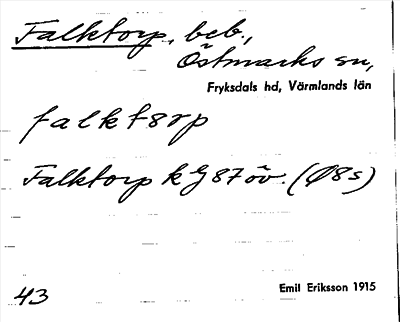 Falktorp, beb.,
Östmarks sn,
Fryksdals hd, Värmlands län
falkt8rp
Falktorp kg 87 öv. (Ø8s)
43
Emil Eriksson 1915